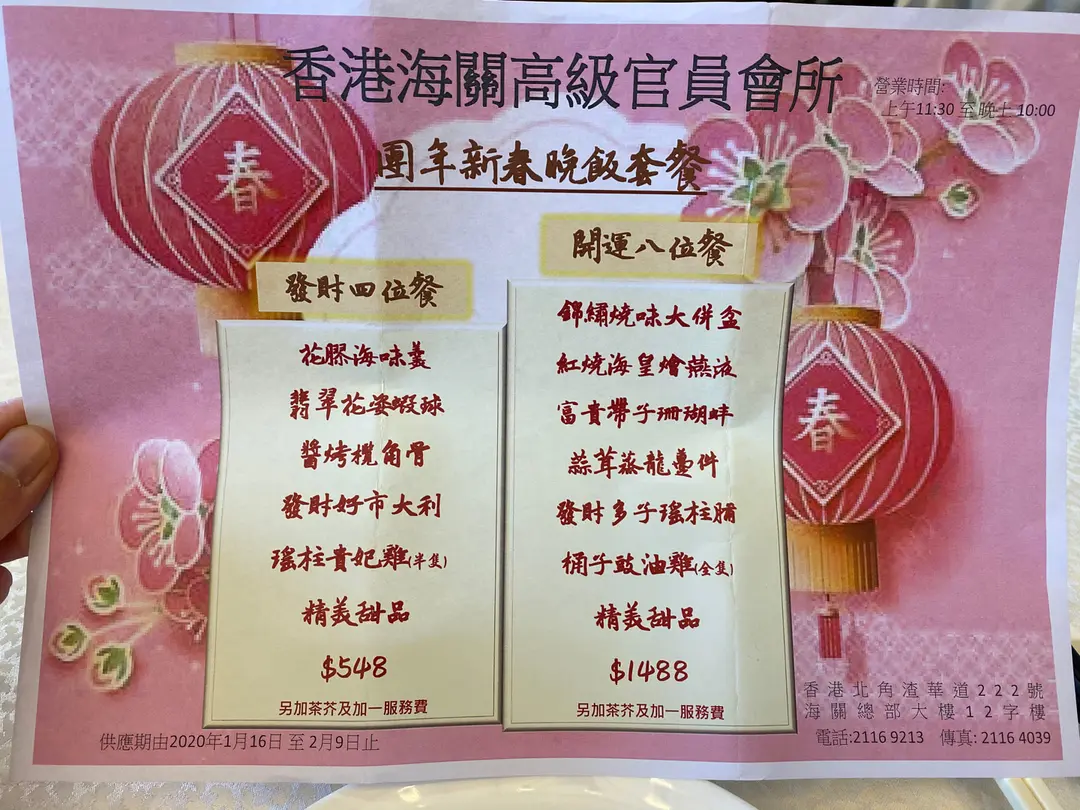 香港海關高級官員會所
營業時間:
上午11:30 至晚上10:00
團年新春晚飯套餐
春
發財四位餐
花膠海味羹
翡翠花姿蝦球
醬烤欖角骨
發財好市大利
瑤柱貴妃雞(半隻)
精美甜品
$548
另加茶芥及加一服務費
開運八位餐
錦繡燒味大併盆
紅燒海皇燴燕液
富貴帶子珊瑚蚌
蒜茸蒸龍躉件
發財多子瑤柱脯
桶子豉油雞(全隻)
精美甜品
$1488
另加茶芥及加一服務費
春
供應期由2020年1月16日 至 2月9日止
香港北角渣華道222號
海關總部大樓12字樓
電話:2116 9213 傳真: 2116 4039